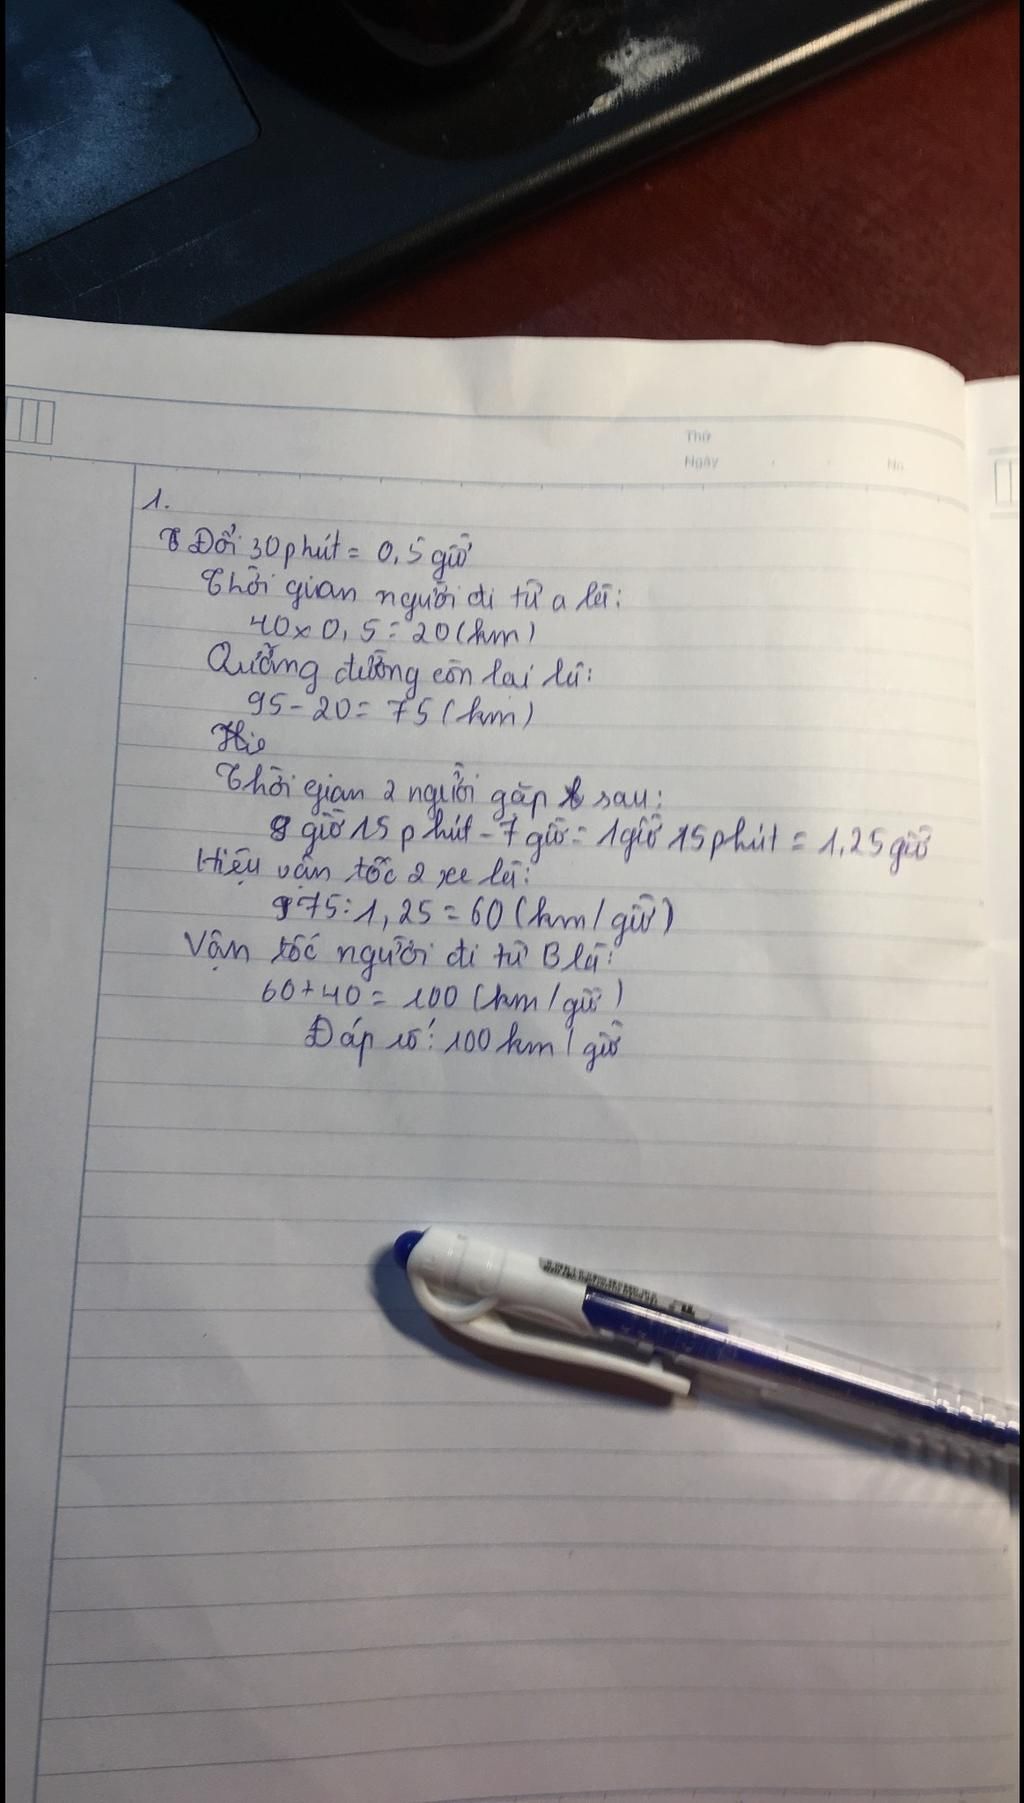 Thứ
Ngày
No.
1.
Đổi 30 phút = 0,5 giờ
Thời gian người đi từ a là:
40 x 0,5 = 20 (km)
Quãng đường còn lại là:
95 - 20 = 75 (km)
Thời gian 2 người gặp sau:
8 giờ 15 phút - 7 giờ = 1 giờ 15 phút = 1,25 giờ
Hiệu vận tốc 2 xe là:
75 : 1,25 = 60 (km/giờ)
Vận tốc người đi từ B là:
60 + 40 = 100 (km/giờ)
Đáp số: 100 km/giờ